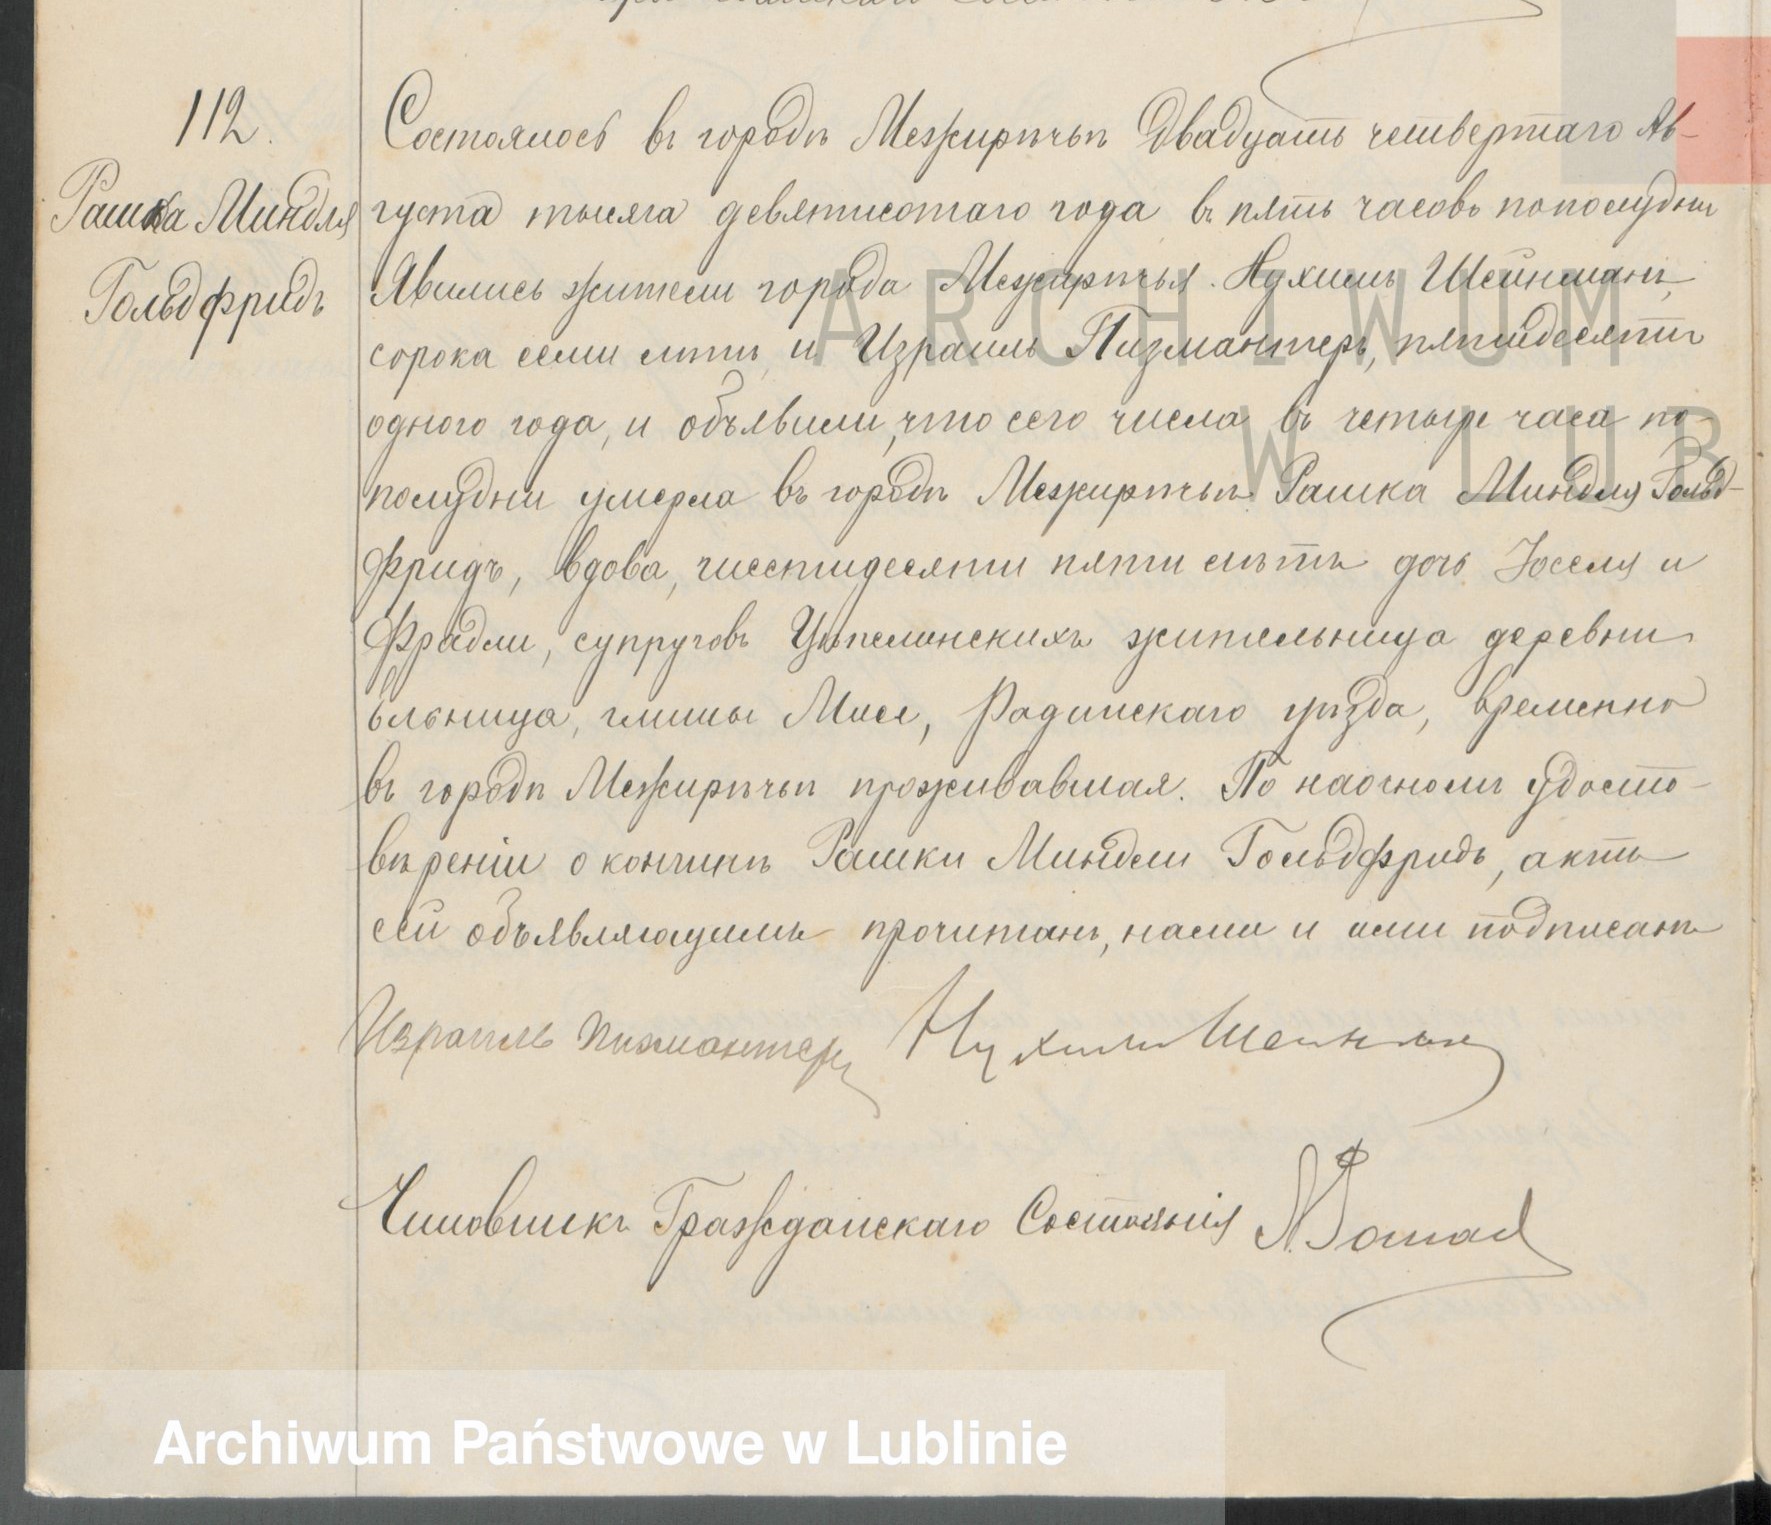 112.
Рашка Миндля
Гольдфридъ
Состоялось въ городѣ Межирѣчьѣ двадцать четвертаго Ав-
густа тысяча девятисотаго года въ пять часовъ пополудни
Явились жители города Межирѣчья. Нухимъ Шейнманъ,
сорока семи лѣтъ, и Израиль Пизмантеръ, пятидесяти
одного года, и объявили, что сего числа въ четыре часа по-
полудни умерла въ городѣ Межирѣчьѣ Рашка Миндля Гольд-
фридъ, вдова, шестидесяти пяти лѣтъ дочь Іоселя и
Фрадли, супруговъ жительница деревни
гмины Мисе, Радинскаго уѣзда, временно
въ городѣ Межирѣчьѣ проживавшая. По наочномъ удосто-
вѣреніи о кончинѣ Рашки Миндли Гольдфридъ, актъ
сей объявляющимъ прочитанъ, нами и ими подписанъ
Израиль Пизмантеръ Нухимъ Шейнман
Чиновникъ Гражданскаго Состоянія
ARCHIWUM
W LUB
Archiwum Państwowe w Lublinie